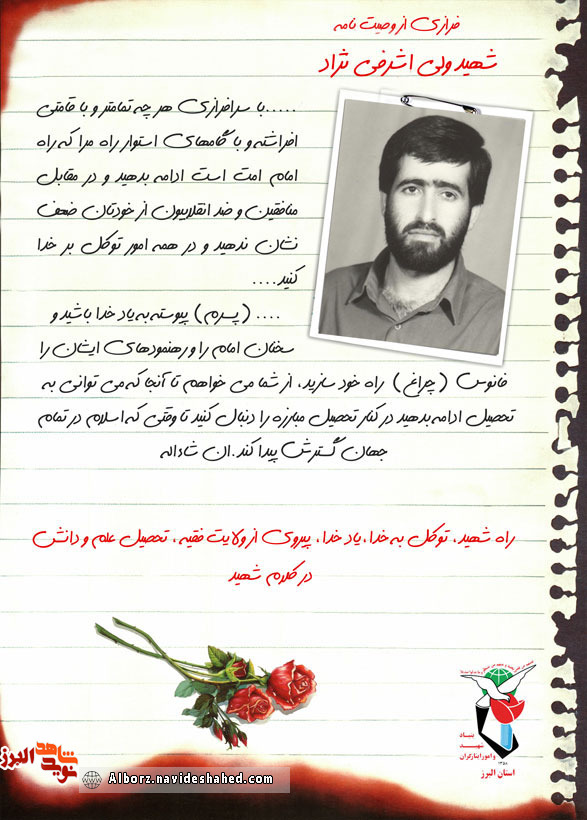 فرازی از وصیت نامه
شهید ولی اشرفی نژاد
.....با سرافرازی هر چه تمامتر و با قامتی
افراشته و با گامهای استوار راه مرا که راه
امام امت است ادامه بدهید و در مقابل
منافقین و ضد انقلابیون از خودتان ضعف
نشان ندهید و در همه امور توکل بر خدا
کنید....
.... (پسرم) پیوسته به یاد خدا باشید و
سخنان امام را و رهنمودهای ایشان را
فانوس (چراغ) راه خود سازید، از شما می خواهم تا آنجا که می توانی به
تحصیل ادامه بدهید در کنار تحصیل مبارزه را دنبال کنید تا وقتی که اسلام در تمام
جهان گسترش پیدا کند. ان شاءاله
راه شهید، توکل به خدا، یاد خدا، پیروی از ولایت فقیه، تحصیل علم و دانش
در کلام شهید
بنیاد
شهید
و امور ایثارگران
۱۳۵۸
استان البرز
نوید شاهد البرز
Alborz.navideshahed.com